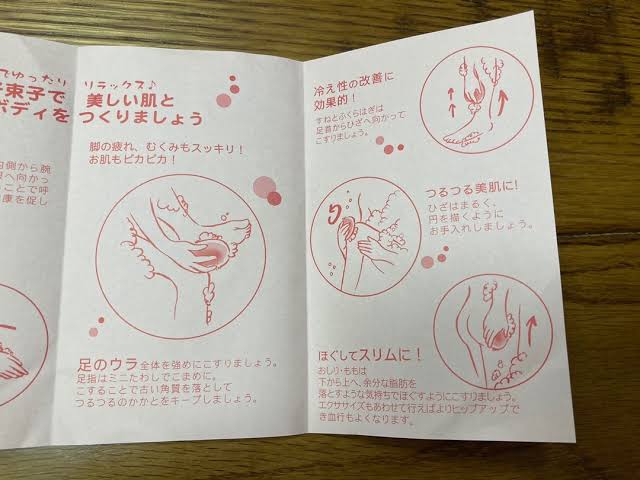 でゆったり リラックス♪
束子で 美しい肌と
ボディを つくりましょう
内側から腕
へ向かっ
ことで呼
康を促し
脚の疲れ、むくみもスッキリ！
お肌もピカピカ！
足のウラ 全体を強めにこすりましょう。
足指はミニたわしでこまめに。
こすることで古い角質を落として
つるつるのかかとをキープしましょう。
冷え性の改善に
効果的！
すねとふくらはぎは
足首からひざへ向かって
こすりましょう。
つるつる美肌に！
ひざはまるく、
円を描くように
お手入れしましょう。
ほぐしてスリムに！
おしり・ももは
下から上へ、余分な脂肪を
落とすような気持ちでほぐすようにこすりましょう。
エクササイズもあわせて行えばよりヒップアップで
き血行もよくなります。